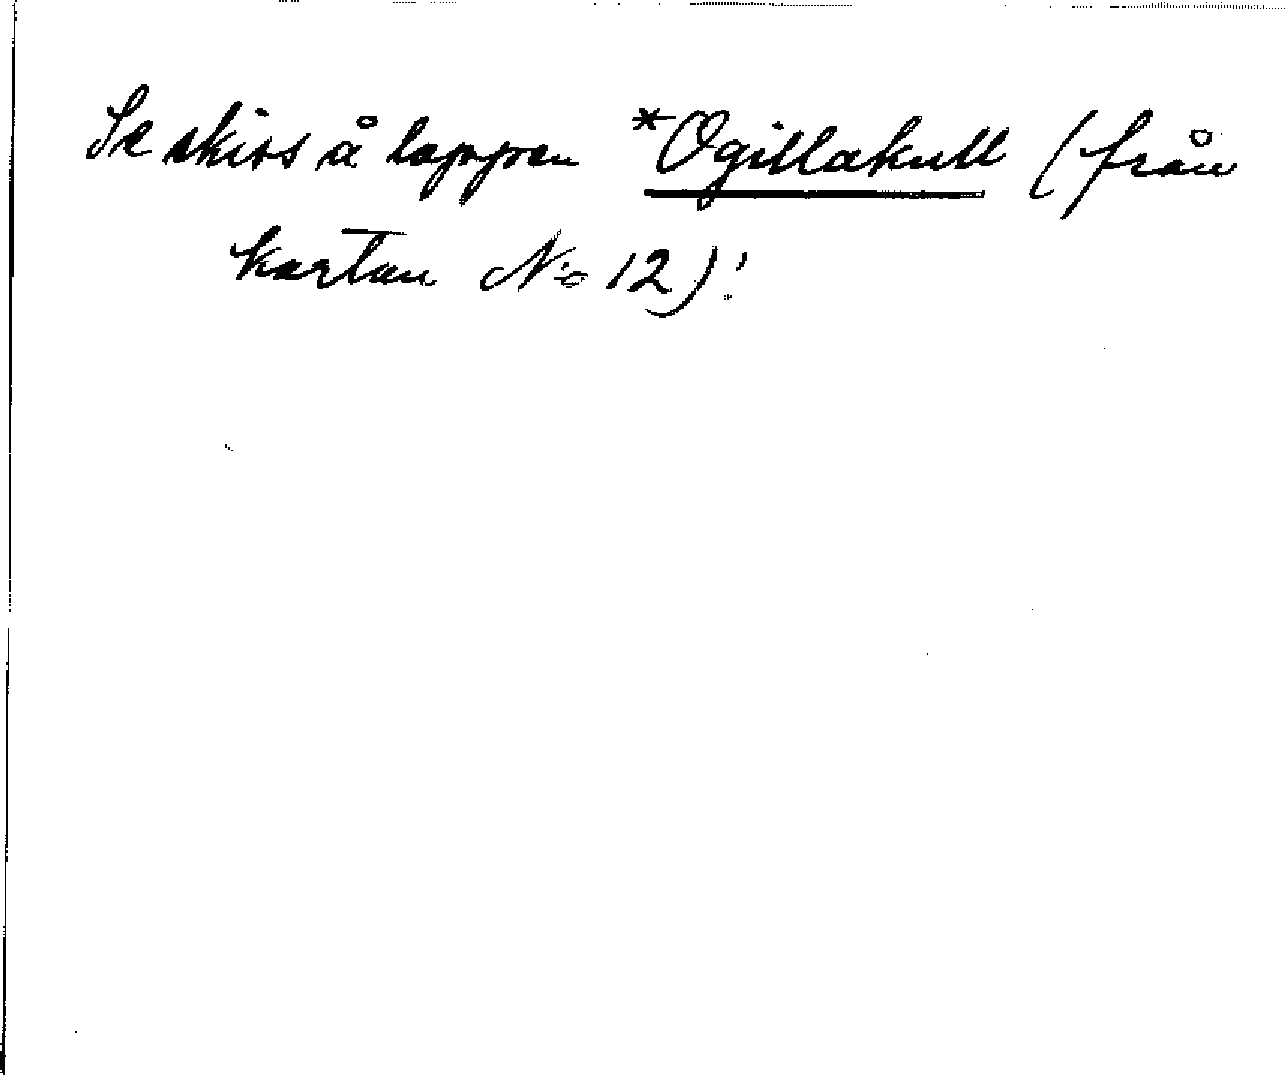 Se skiss å lappen *Ogillakull (från
kartan No 12)!